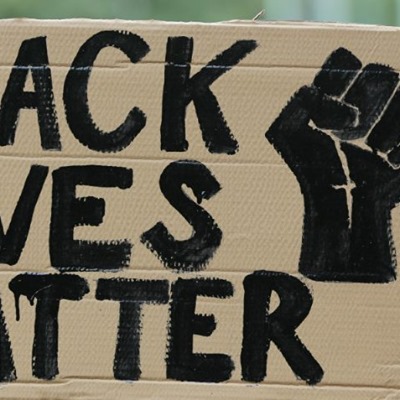 ACK
VES
ATTER